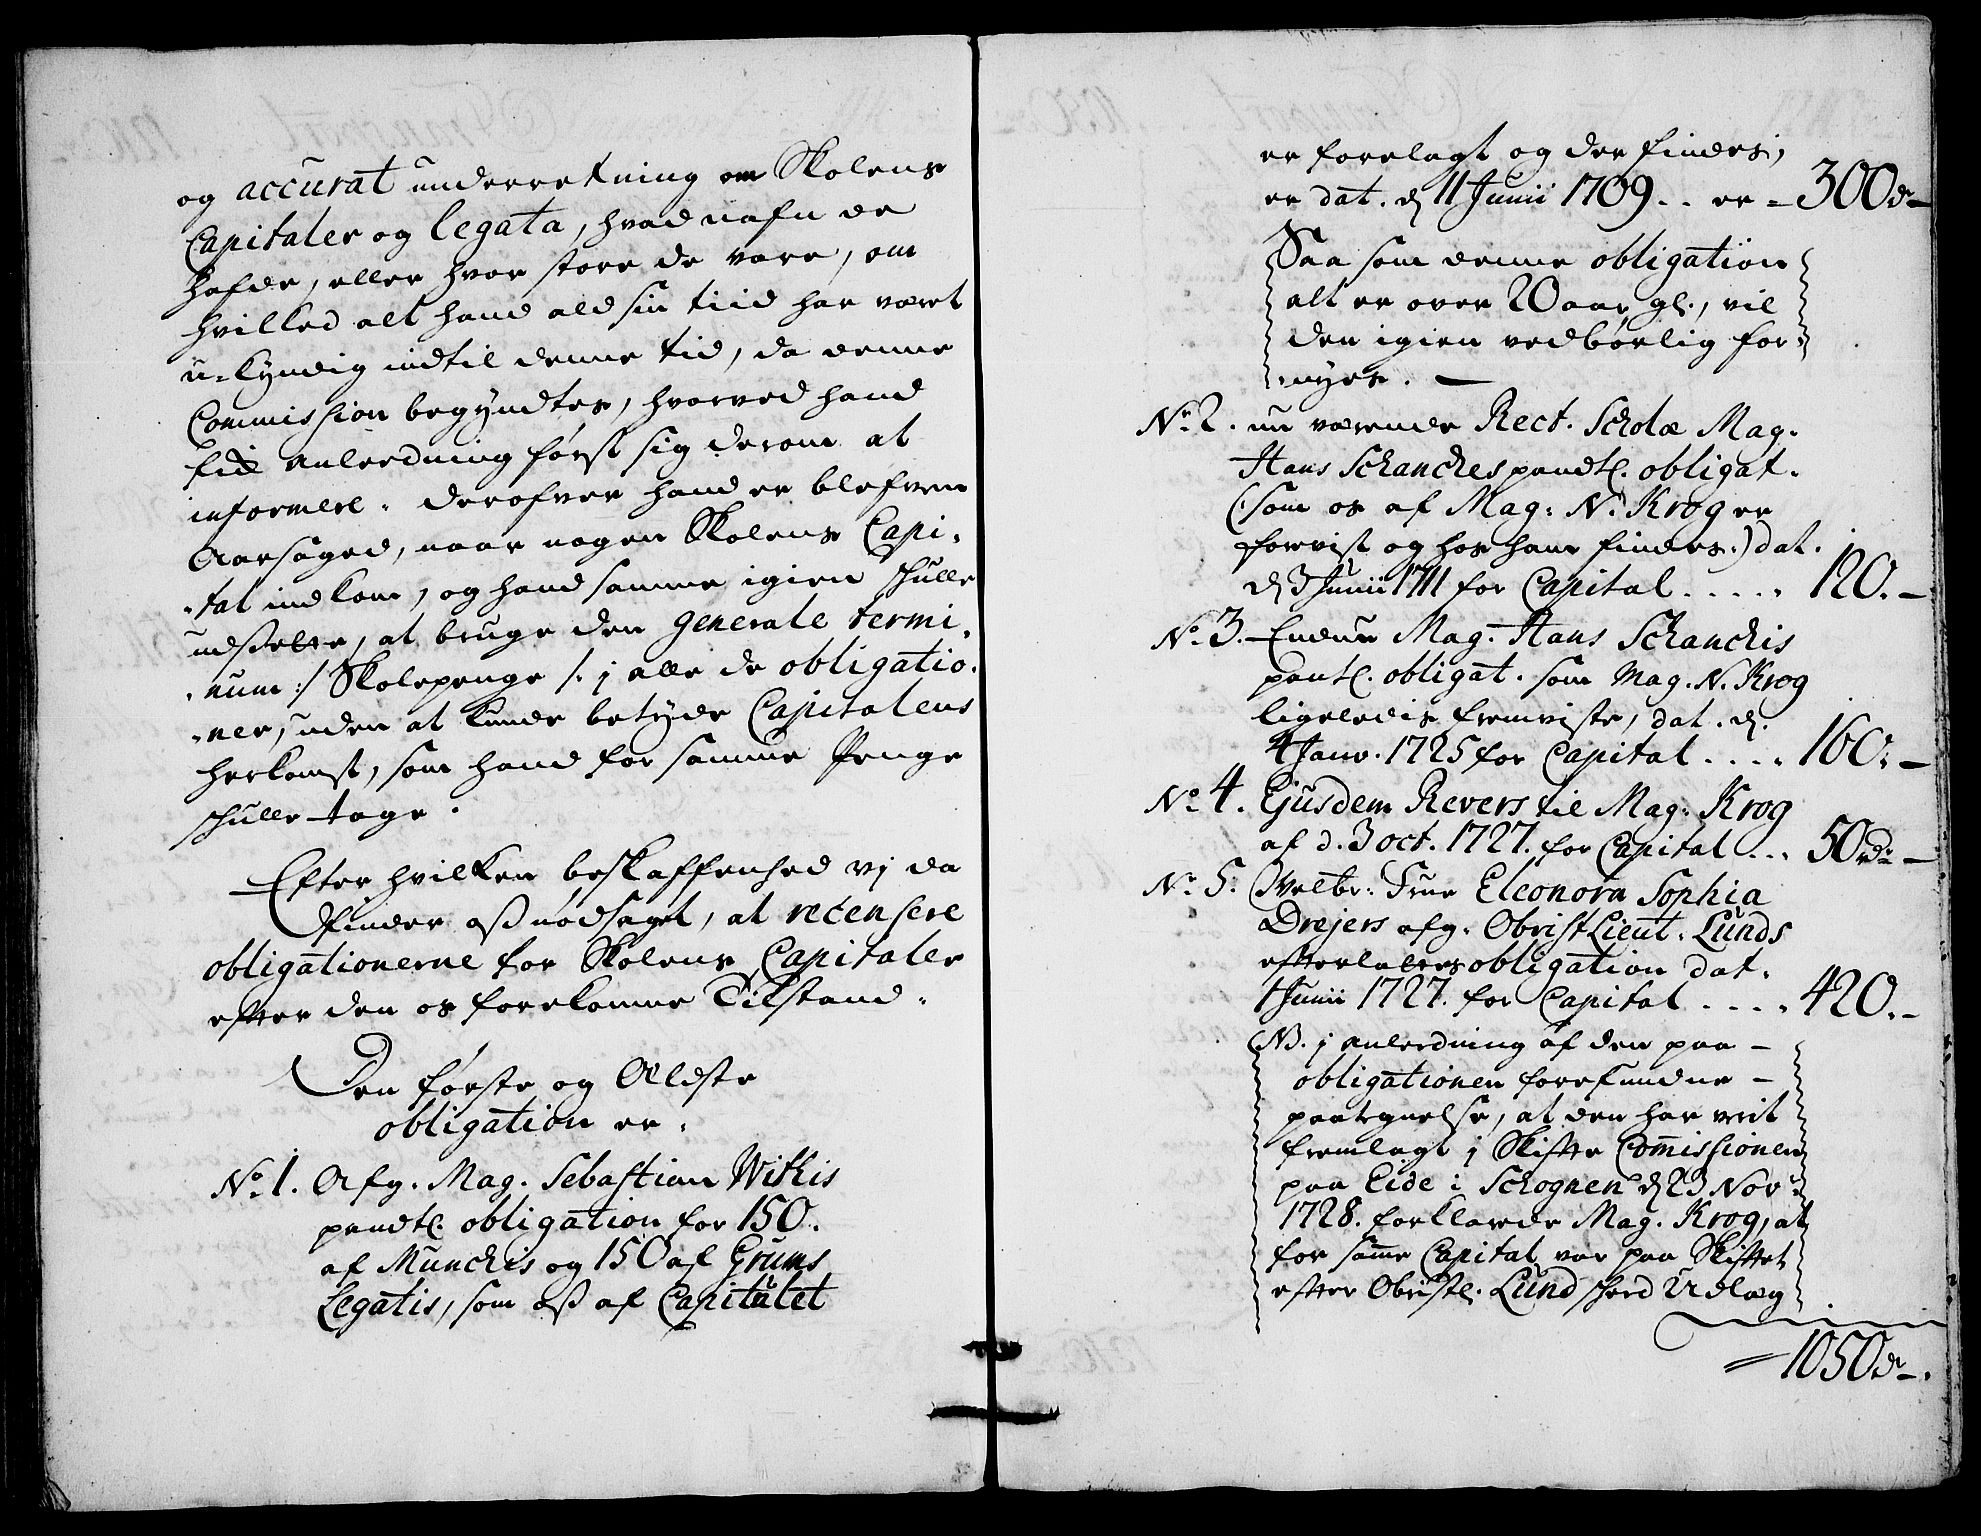 og accurat underretning om Skolens
Capitaler og legata, hvad nafn de
hafde, eller hvor store de vare, om
hvilked alt hand ald sin tiid har været
u-kyndig indtil denne tid, da denne
Commission begyndtes, hvorved hand
fik anleedning først sig derom at
informere. derofver hand er blefven
Aarsaged, naar nogen Skolens Capi-
-tal indkom, og hand samme igien schulle
udsette, at bruge den generale termi-
-num :/ Skolepenge /: j alle de obligatio-
-ner, uden at kunde betyde Capitalens
herkomst, som hand for samme Penge
schulle tage.
Efter hvilken beskaffenhed vj da
finder oß nødsaget, at recensere
obligationerne for Skolens Capitaler
efter den os forekomne Tilstand.
Den første og Ældste
obligation er.
No. 1. Afg. Mag. Sebastian Withis
pandtl. obligation for 150.
af Munchis og 150 af Grums
Legatis, som oß af Capitulet
er forelagt og der findes,
er dat. d 11 Junii 1709 . . er - 300 dr -
Saa som denne obligation
alt er over 20 aar gl., vil
den igien vedbørlig for-
-nyes. -
No. 2. nu værende Rect. Scholæ Mag.
Hans Schanches pandtl. obligat.
(: som os af Mag: N. Krog er
forevist og hos ham findes :) dat.
d 3 Junii 1711 for Capital . . . . . 120. -
No. 3. Endnu Mag. Hans Schanchis
pantl. obligat. som Mag. N. Krog
ligeledis fremviste, dat. d.
4 Janv. 1725 for Capital . . . . 160: -
No. 4. Ejusdem Revers til Mag: Krog
af d. 3 oct. 1727. for Capital . . . 50 rdr -
No. 5. Velbr: Frue Eleonora Sophia
Drejers afg. Obrist Lieut. Lunds
efterlattes obligation dat.
1 Junii 1727. for Capital . . . . 420. -
NB. j anleedning af den paa -
obligationen forefundne -
paategnelse, at den har vært
fremlagt j Skifte Commissionen
paa Eide i Schognen d 23 Nov:
1728. forklarede Mag. Krog, at
for samme Capital var paa Skiftet
efter Obristl. Lund scheed Udlæg
= 1050 dr -.